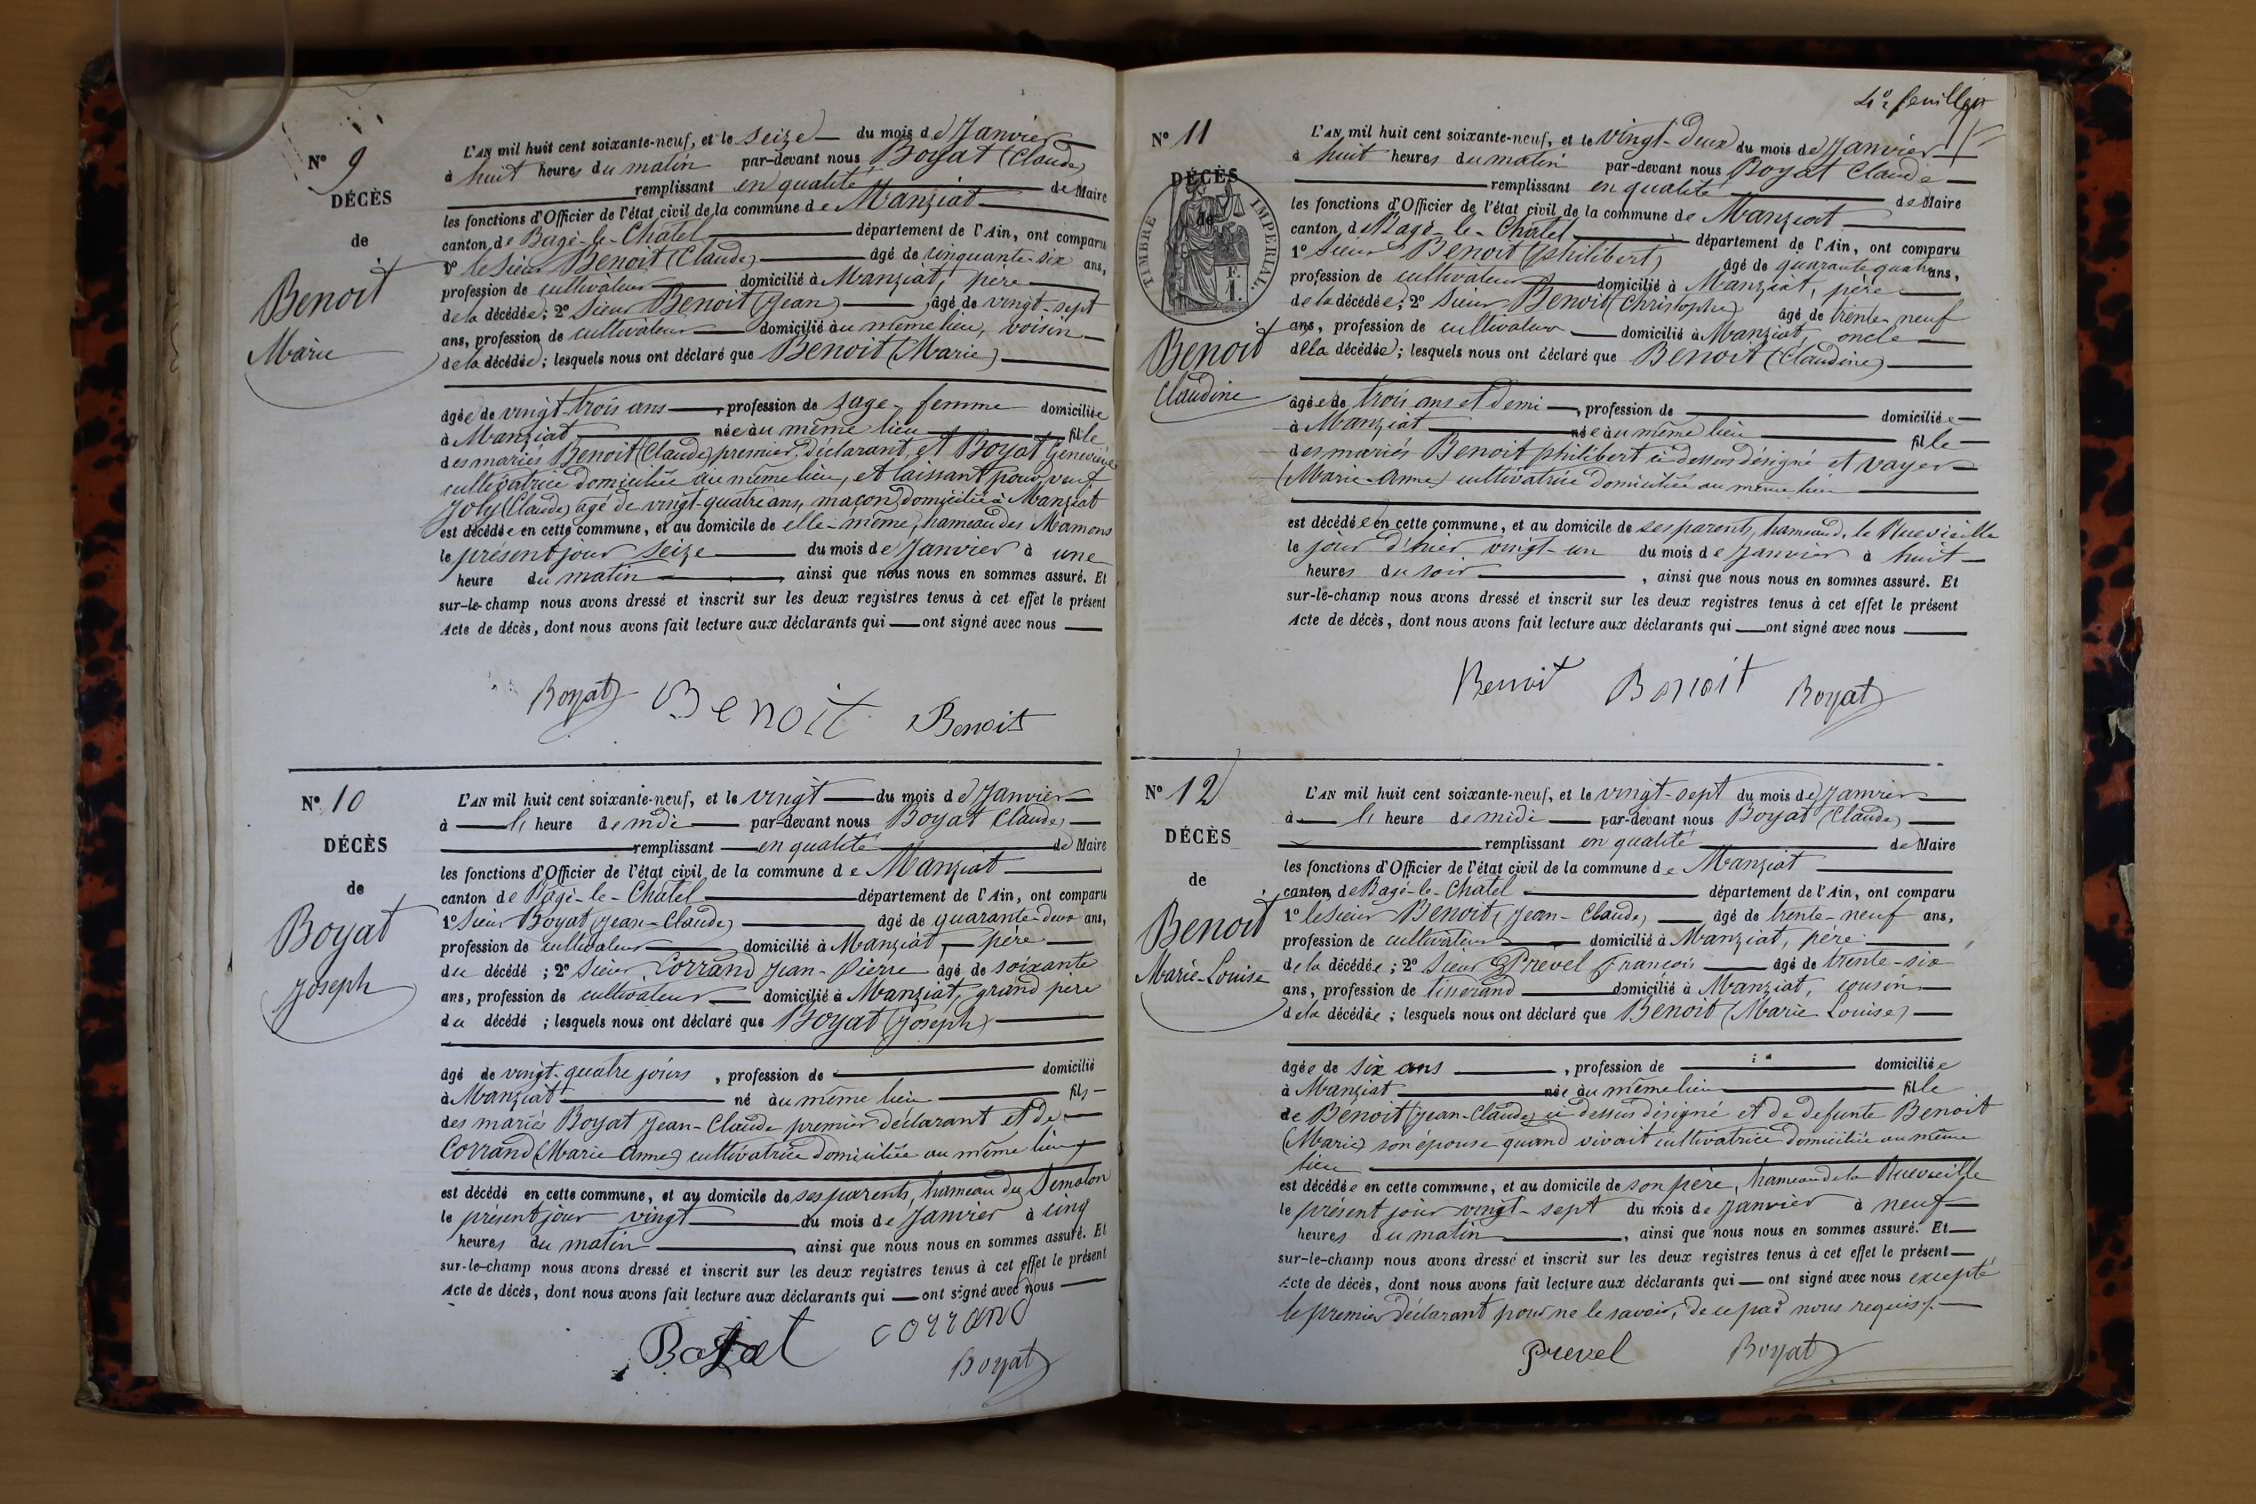 N° 9
DÉCÈS
de
Benoit
Marie
L'AN mil huit cent soixante-neuf, et le seize du mois de Janvier
à huit heures du matin par-devant nous Boyat (Claude)
remplissant en qualité de Maire
les fonctions d'Officier de l'état civil de la commune de Manziat
canton de Bagé-le-Chatel département de l'Ain, ont comparu
1° le Sieur Benoit (Claude) âgé de cinquante-six ans,
profession de cultivateur domicilié à Manziat, père
de la décédée; 2° Sieur Benoit (Jean) âgé de vingt-sept
ans, profession de cultivateur domicilié au même lieu, voisin
de la décédée; lesquels nous ont déclaré que Benoit (Marie)
âgée de vingt-trois ans, profession de sage-femme domiciliée
à Manziat née au même lieu fille
des mariés Benoit (Claude) premier déclarant, et Boyat Geneviève
cultivatrice domiciliée au même lieu, et laissant pour veuf
Joly (Claude) agé de vingt-quatre ans, maçon domicilié à Manziat
est décédée en cette commune, et au domicile de elle-même, hameau des Mamons
le présent jour seize du mois de Janvier à une
heure du matin, ainsi que nous nous en sommes assuré. Et
sur-le-champ nous avons dressé et inscrit sur les deux registres tenus à cet effet le présent
Acte de décès, dont nous avons fait lecture aux déclarants qui ont signé avec nous
Boyat Benoit Benoit
N° 10
DÉCÈS
de
Boyat
Joseph
L'AN mil huit cent soixante-neuf, et le vingt du mois de Janvier
à heure de midi par-devant nous Boyat Claude
remplissant en qualité de Maire
les fonctions d'Officier de l'état civil de la commune de Manziat
canton de Bagé-le-Chatel département de l'Ain, ont comparu
1° Sieur Boyat (Jean-Claude) âgé de quarante-deux ans,
profession de cultivateur domicilié à Manziat, père
du décédé; 2° Sieur Corrand Jean-Pierre âgé de soixante
ans, profession de cultivateur domicilié à Manziat, grand père
du décédé; lesquels nous ont déclaré que Boyat (Joseph)
âgé de vingt-quatre jours, profession de domicilié
à Manziat né au même lieu fils
des mariés Boyat Jean-Claude premier déclarant et de
Corrand (Marie Anne) cultivatrice domiciliée au même lieu
est décédé en cette commune, et au domicile de ses parents, hameau du
le présent jour vingt du mois de Janvier à cinq
heures du matin, ainsi que nous nous en sommes assuré. Et
sur-le-champ nous avons dressé et inscrit sur les deux registres tenus à cet effet le présent
Acte de décès, dont nous avons fait lecture aux déclarants qui ont signé avec nous
Boyat corrand
Boyat
4e feuillet
N° 11
DÉCÈS
de
TIMBRE IMPERIAL.
Benoit
Claudine
L'AN mil huit cent soixante-neuf, et le vingt-deux du mois de Janvier
à huit heures du matin par-devant nous Boyat Claude
remplissant en qualité de Maire
les fonctions d'Officier de l'état civil de la commune de Manziat
canton de Bagé-le-Chatel département de l'Ain, ont comparu
1° Sieur Benoit (philibert) âgé de quarante quatre ans,
profession de cultivateur domicilié à Manziat, père
de la décédée; 2° Sieur Benoit (Christophe) âgé de trente-neuf
ans, profession de cultivateur domicilié à Manziat, oncle
de la décédée; lesquels nous ont déclaré que Benoit (Claudine)
âgée de trois ans et demi, profession de domiciliée
à Manziat née au même lieu fille
des mariés Benoit philibert ci dessus désigné et Vayer
(Marie-Anne) cultivatrice domiciliée au même lieu
est décédée en cette commune, et au domicile de ses parents, hameau de la Ruevieille
le jour d'hier vingt-un du mois de Janvier à huit
heures du soir, ainsi que nous nous en sommes assuré. Et
sur-le-champ nous avons dressé et inscrit sur les deux registres tenus à cet effet le présent
Acte de décès, dont nous avons fait lecture aux déclarants qui ont signé avec nous
Benoit Benoit Boyat
N° 12
DÉCÈS
de
Benoit
Marie-Louise
L'AN mil huit cent soixante-neuf, et le vingt-sept du mois de Janvier
à heure de midi par-devant nous Boyat (Claude)
remplissant en qualité de Maire
les fonctions d'Officier de l'état civil de la commune de Manziat
canton de Bagé-le-Chatel département de l'Ain, ont comparu
1° le Sieur Benoit, (Jean-Claude) âgé de trente-neuf ans,
profession de cultivateur domicilié à Manziat, père
de la décédée; 2° Sieur Prevel François âgé de trente-six
ans, profession de tisserand domicilié à Manziat, cousin
de la décédée; lesquels nous ont déclaré que Benoit (Marie Louise)
âgée de six ans, profession de domiciliée
à Manziat née au même lieu fille
de Benoit (Jean-Claude) ci dessus désigné et de defunte Benoit
(Marie) son épouse quand vivait cultivatrice domiciliée au même
lieu
est décédée en cette commune, et au domicile de son père, hameau de la Ruevieille
le présent jour vingt-sept du mois de Janvier à neuf
heures du matin, ainsi que nous nous en sommes assuré. Et
sur-le-champ nous avons dressé et inscrit sur les deux registres tenus à cet effet le présent
Acte de décès, dont nous avons fait lecture aux déclarants qui ont signé avec nous excepté
le premier déclarant pour ne le savoir, de ce par nous requis.
Prevel Boyat